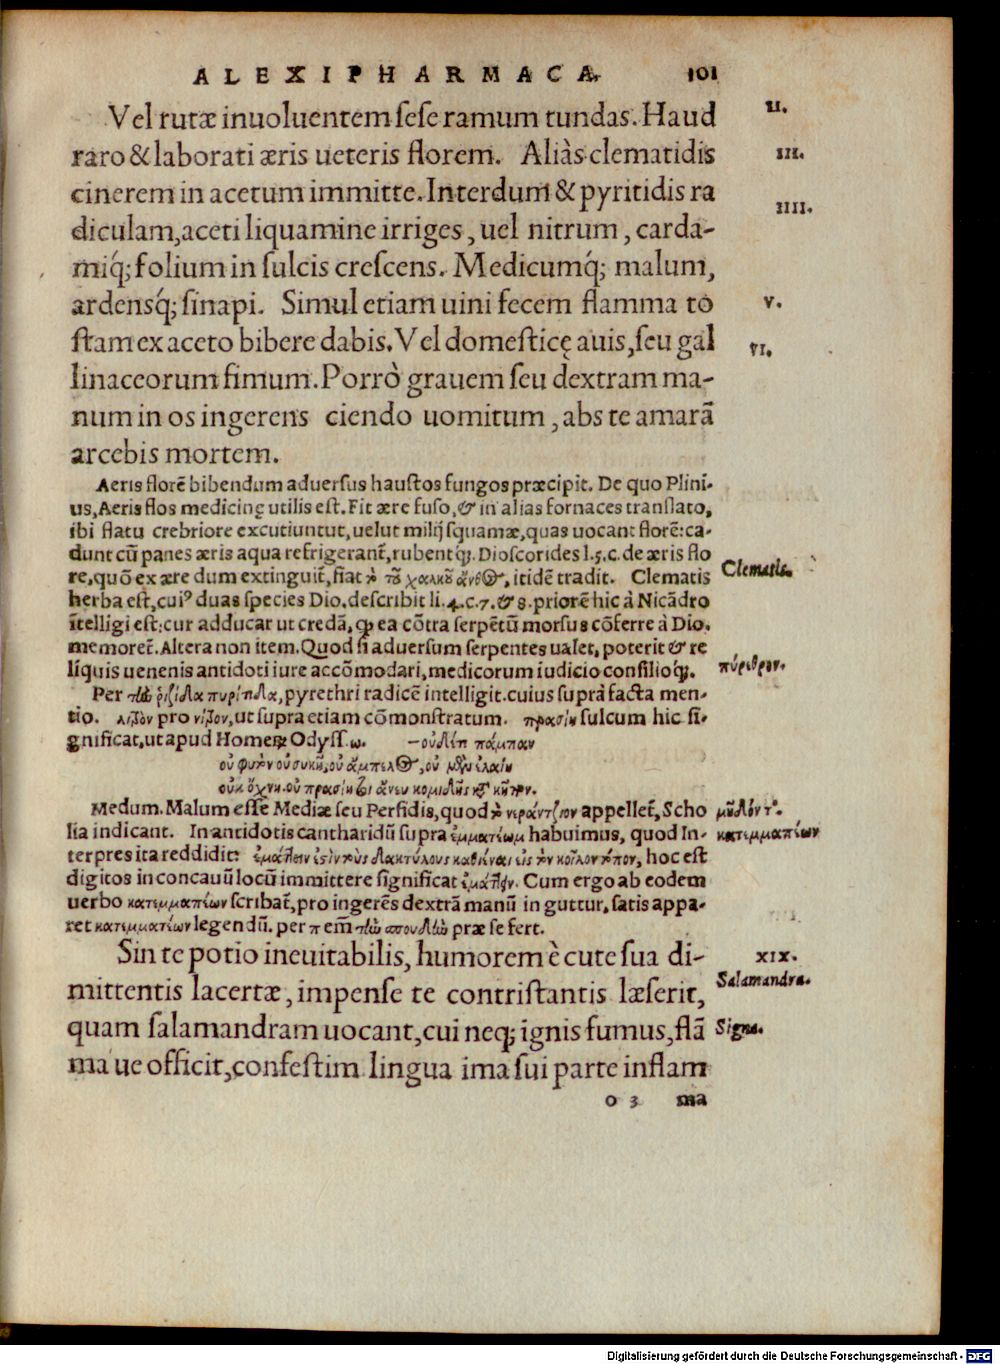 ALEXIPHARMACA. 101
Vel rutæ inuoluentem sese ramum tundas. Haud II.
raro & laborati æris ueteris florem. Aliàs clematidis III.
cinerem in acetum immitte. Interdum & pyritidis ra
diculam, aceti liquamine irriges, uel nitrum, carda- IIII.
miq́; folium in sulcis crescens. Medicumq́; malum,
ardensq́; sinapi. Simul etiam uini fecem flamma to V.
stam ex aceto bibere dabis. Vel domesticę auis, seu gal VI.
linaceorum fimum. Porrò grauem seu dextram ma-
num in os ingerens ciendo uomitum, abs te amarā
arcebis mortem.
Aeris florē bibendum aduersus haustos fungos præcipit. De quo Plini-
us, Aeris flos medicinę utilis est. Fit ære fuso, & in alias fornaces translato,
ibi flatu crebriore excutiuntut, uelut milij squamæ, quas uocant florē: ca-
dunt cū panes æris aqua refrigerant̃, rubentq́;. Dioscorides l. 5. c. de æris flo
re, quō ex ære dum extinguit̃, fiat τὸ τοῦ χαλκοῦ ἄνθος, itidē tradit. Clematis Clematis.
herba est, cuiꝰ duas species Dio. describit li. 4. c. 7. & 8. priorē hic à Nicādro
ītelligi est: cur adducar ut credā, ꝙ ea cōtra serpētū morsus cōferre à Dio.
memoret̃. Altera non item. Quod si aduersum serpentes ualet, poterit & re
liquis uenenis antidoti iure accōmodari, medicorum iudicio consilioq́;. πύρεθρον.
Per τὼ ῥιζίδα πυρίτιδα, pyrethri radicē intelligit. cuius suprà facta men-
tio. λίτρον pro νίτρον, ut supra etiam cōmonstratum. πρασιὴ sulcum hic si-
gnificat, ut apud Homerū Odyss. ω. —οὐδέτι πάμπαν
οὐ φυτὸν οὐ συκῆ, οὐ ἄμπελος, οὐ μὲν ἐλαίη
οὐκ ὄχνη. οὐ πρασιή τοι ἄνευ κομιδῆς κατὰ κῆπον.
Medum. Malum esse Mediæ seu Persidis, quod τὸ νεράντζιον appellet̃, Scho μῆδόν τε.
lia indicant. In antidotis cantharidū supra ἐμματέων habuimus, quod In- κατεμματέων
terpres ita reddidit: ἐμάτλειν ἐστὶν τοὺς δακτύλους καθιέναι εἰς τὸν κοῖλον τόπον, hoc est
digitos in concauū locū immittere significat ἐμάτλειν. Cum ergo ab eodem
uerbo κατεμματέων scribat̃, pro ingerēs dextrā manū in guttur, satis appa-
ret κατεμματέων legendū. per π em̃ τὼ σπουδὼ præ se fert.
Sin te potio ineuitabilis, humorem è cute sua di- XIX.
mittentis lacertæ, impense te contristantis læserit, Salamandra.
quam salamandram uocant, cui neq; ignis fumus, flā Signa.
ma ue officit, confestim lingua ima sui parte inflam
o 3 ma
Digitalisierung gefördert durch die Deutsche Forschungsgemeinschaft - DFG